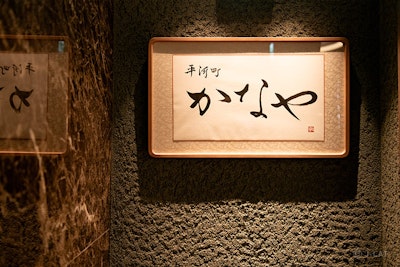 平河町
かなや